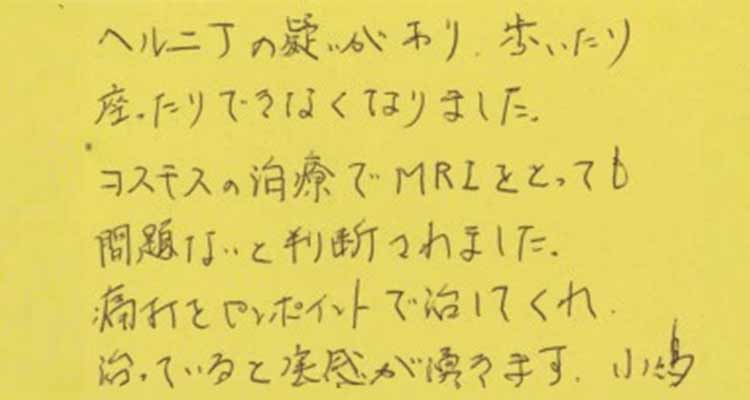 ヘルニアの疑いがあり、歩いたり
座ったりできなくなりました。
コスモスの治療でMRIをとっても
問題ないと判断されました。
痛みをピンポイントで治してくれ、
治っていると実感が湧きます。小嶋